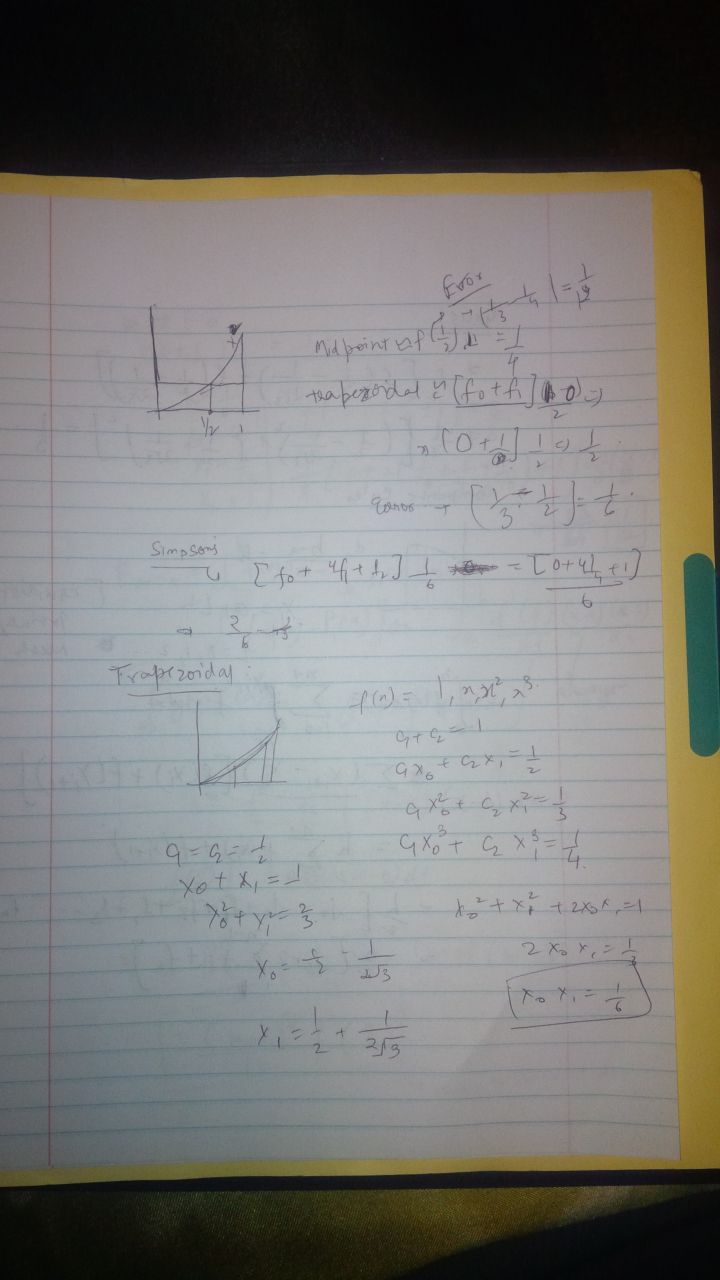 Error
→ |1/3 - 1/4| = 1/12
Midpoint ≈ f(1/2).1 = 1/4
trapezoidal ≈ [f0 + f1] (1-0)/2 ⇒
[0 + 1] 1/2 ⇒ 1/2
1/2 1
Error → [1/3 - 1/2] = 1/6
Simpsons
[f0 + 4f1 + f2] 1/6 = [0 + 4/4 + 1]/6
⇒ 2/6
Trapezoidal
f(x) = 1, x, x², x³
c1 + c2 = 1
c1x0 + c2x1 = 1/2
c1x0² + c2x1² = 1/3
c1x0³ + c2x1³ = 1/4
c1 = c2 = 1/2
x0 + x1 = 1
x0² + x1² = 2/3
x0 = 1/2 - 1/2√3
x1 = 1/2 + 1/2√3
x0² + x1² + 2x0x1 = 1
2x0x1 = 1/3
x0x1 = 1/6